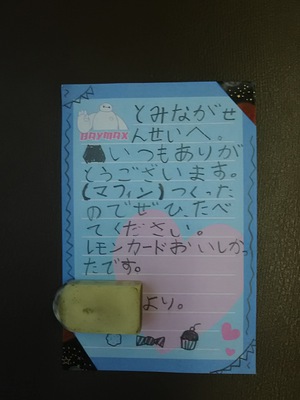 とみながせ
BAYMAX
んせいへ。
いつもありが
とうございます。
(マフィン)つくった
のでぜひたべ
てください。
レモンカードおいしかっ
たです。
より。